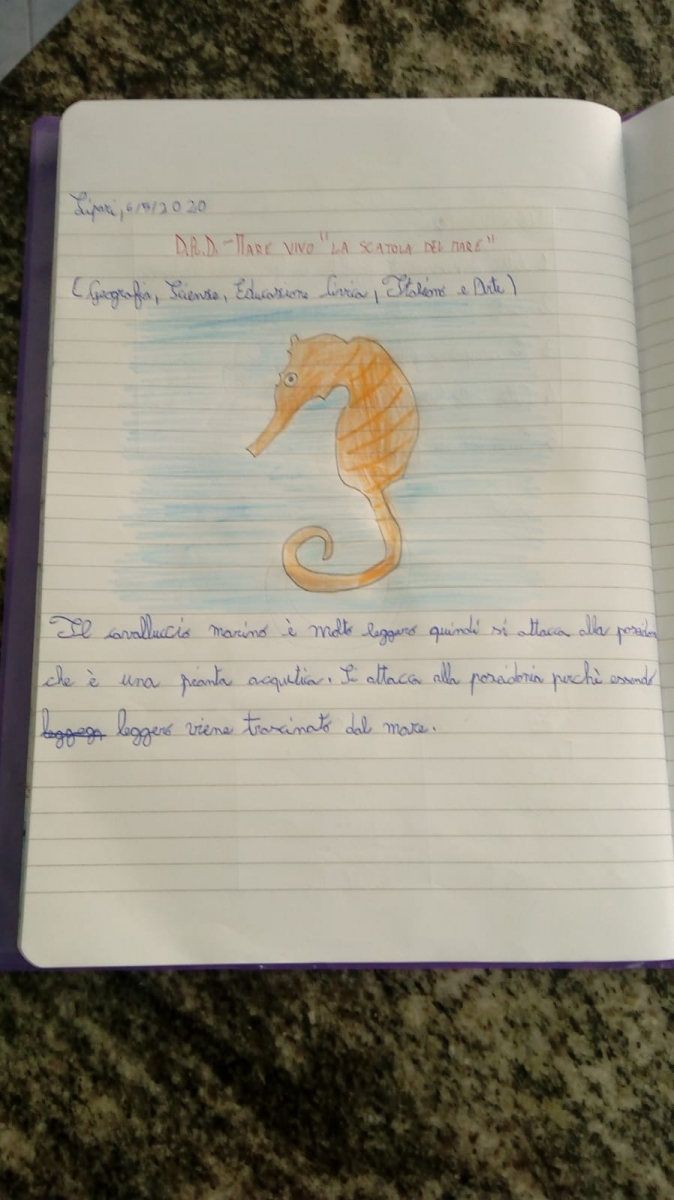 Lipari, 6/4/2020
D.A.D. - MARE VIVO "LA SCATOLA DEL MARE"
(Geografia, Scienze, Educazione Civica, Italiano e Arte)
Il cavalluccio marino è molto leggero quindi si attacca alla
che è una pianta acqutica. Si attacca alla posidonia perchè essendo
leggero viene trascinato dal mare.